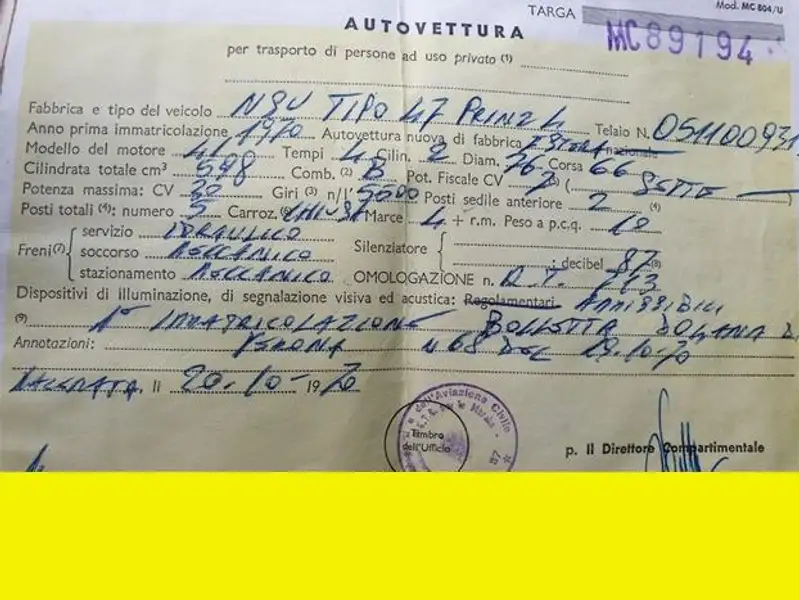 TARGA
Mod. MC 804/U
AUTOVETTURA
MC89194
per trasporto di persone ad uso privato (1)
Fabbrica e tipo del veicolo NSU TIPO 47 PRINZ 4 Telaio N. 051100931
Anno prima immatricolazione 1970 Autovettura nuova di fabbrica ESTERA nazionale
Modello del motore Tempi 4 Cilin. 2 Diam. 76 Corsa 66
Cilindrata totale cm³ 598 Comb. (2) B Pot. Fiscale CV ( SETTE )
Potenza massima: CV Giri (3) n/1' 5600 Posti sedile anteriore 2 (4)
Posti totali (4): numero 5 Carroz. CHIUSA Marce 4 + r.m. Peso a p.c.q.
Freni (7) servizio IDRAULICO
soccorso MECCANICO
stazionamento MECCANICO
Silenziatore
; decibel 87 (8)
OMOLOGAZIONE n.
Dispositivi di illuminazione, di segnalazione visiva ed acustica: Regolamentari AMMISSIBILI
(9) 1ª IMMATRICOLAZIONE BOLLETTA DOGANA DI
Annotazioni: VERONA N 68 DEL
MACERATA, li 20-10-1970
dell'Aviazione Civile
Timbro
dell'Ufficio
p. Il Direttore Compartimentale